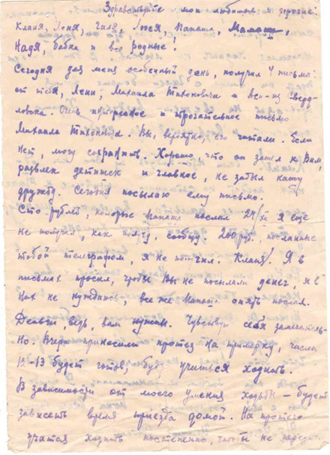 Здравствуйте мои любимые и дорогие:
Клава, Лоня, Галя, Люся, Мамаша,
Надя, бабка и все родные!
Сегодня для меня особенный день, получил 4 письма:
от тебя, Лени, Михаила и
Очень прекрасное и письмо
Михаила Вы, вероятно, его читали. Если
нет могу сохранить. Хорошо, что он зашел к Вам,
развлек детишек и главное, не забыл нашу
дружбу. Сегодня посылаю ему письмо.
Сто рублей, которые мамаша послала я еще
не получил, как получу, сообщу. 200 руб. посланные
тобой телеграфом, я не получил. Клава! Я в
письмах просил, чтобы Вы не посылали денег, я в
них не нуждаюсь, все же опять
Деньги, ведь, вам нужны. Чувствую себя замечательно.
Вчера приносили протез на примерку, числа
12-13 будет готов, буду учиться ходить.
В зависимости от моего умения ходить – будет
зависеть время приезда домой. На протезе
учатся ходить постепенно, чтобы не